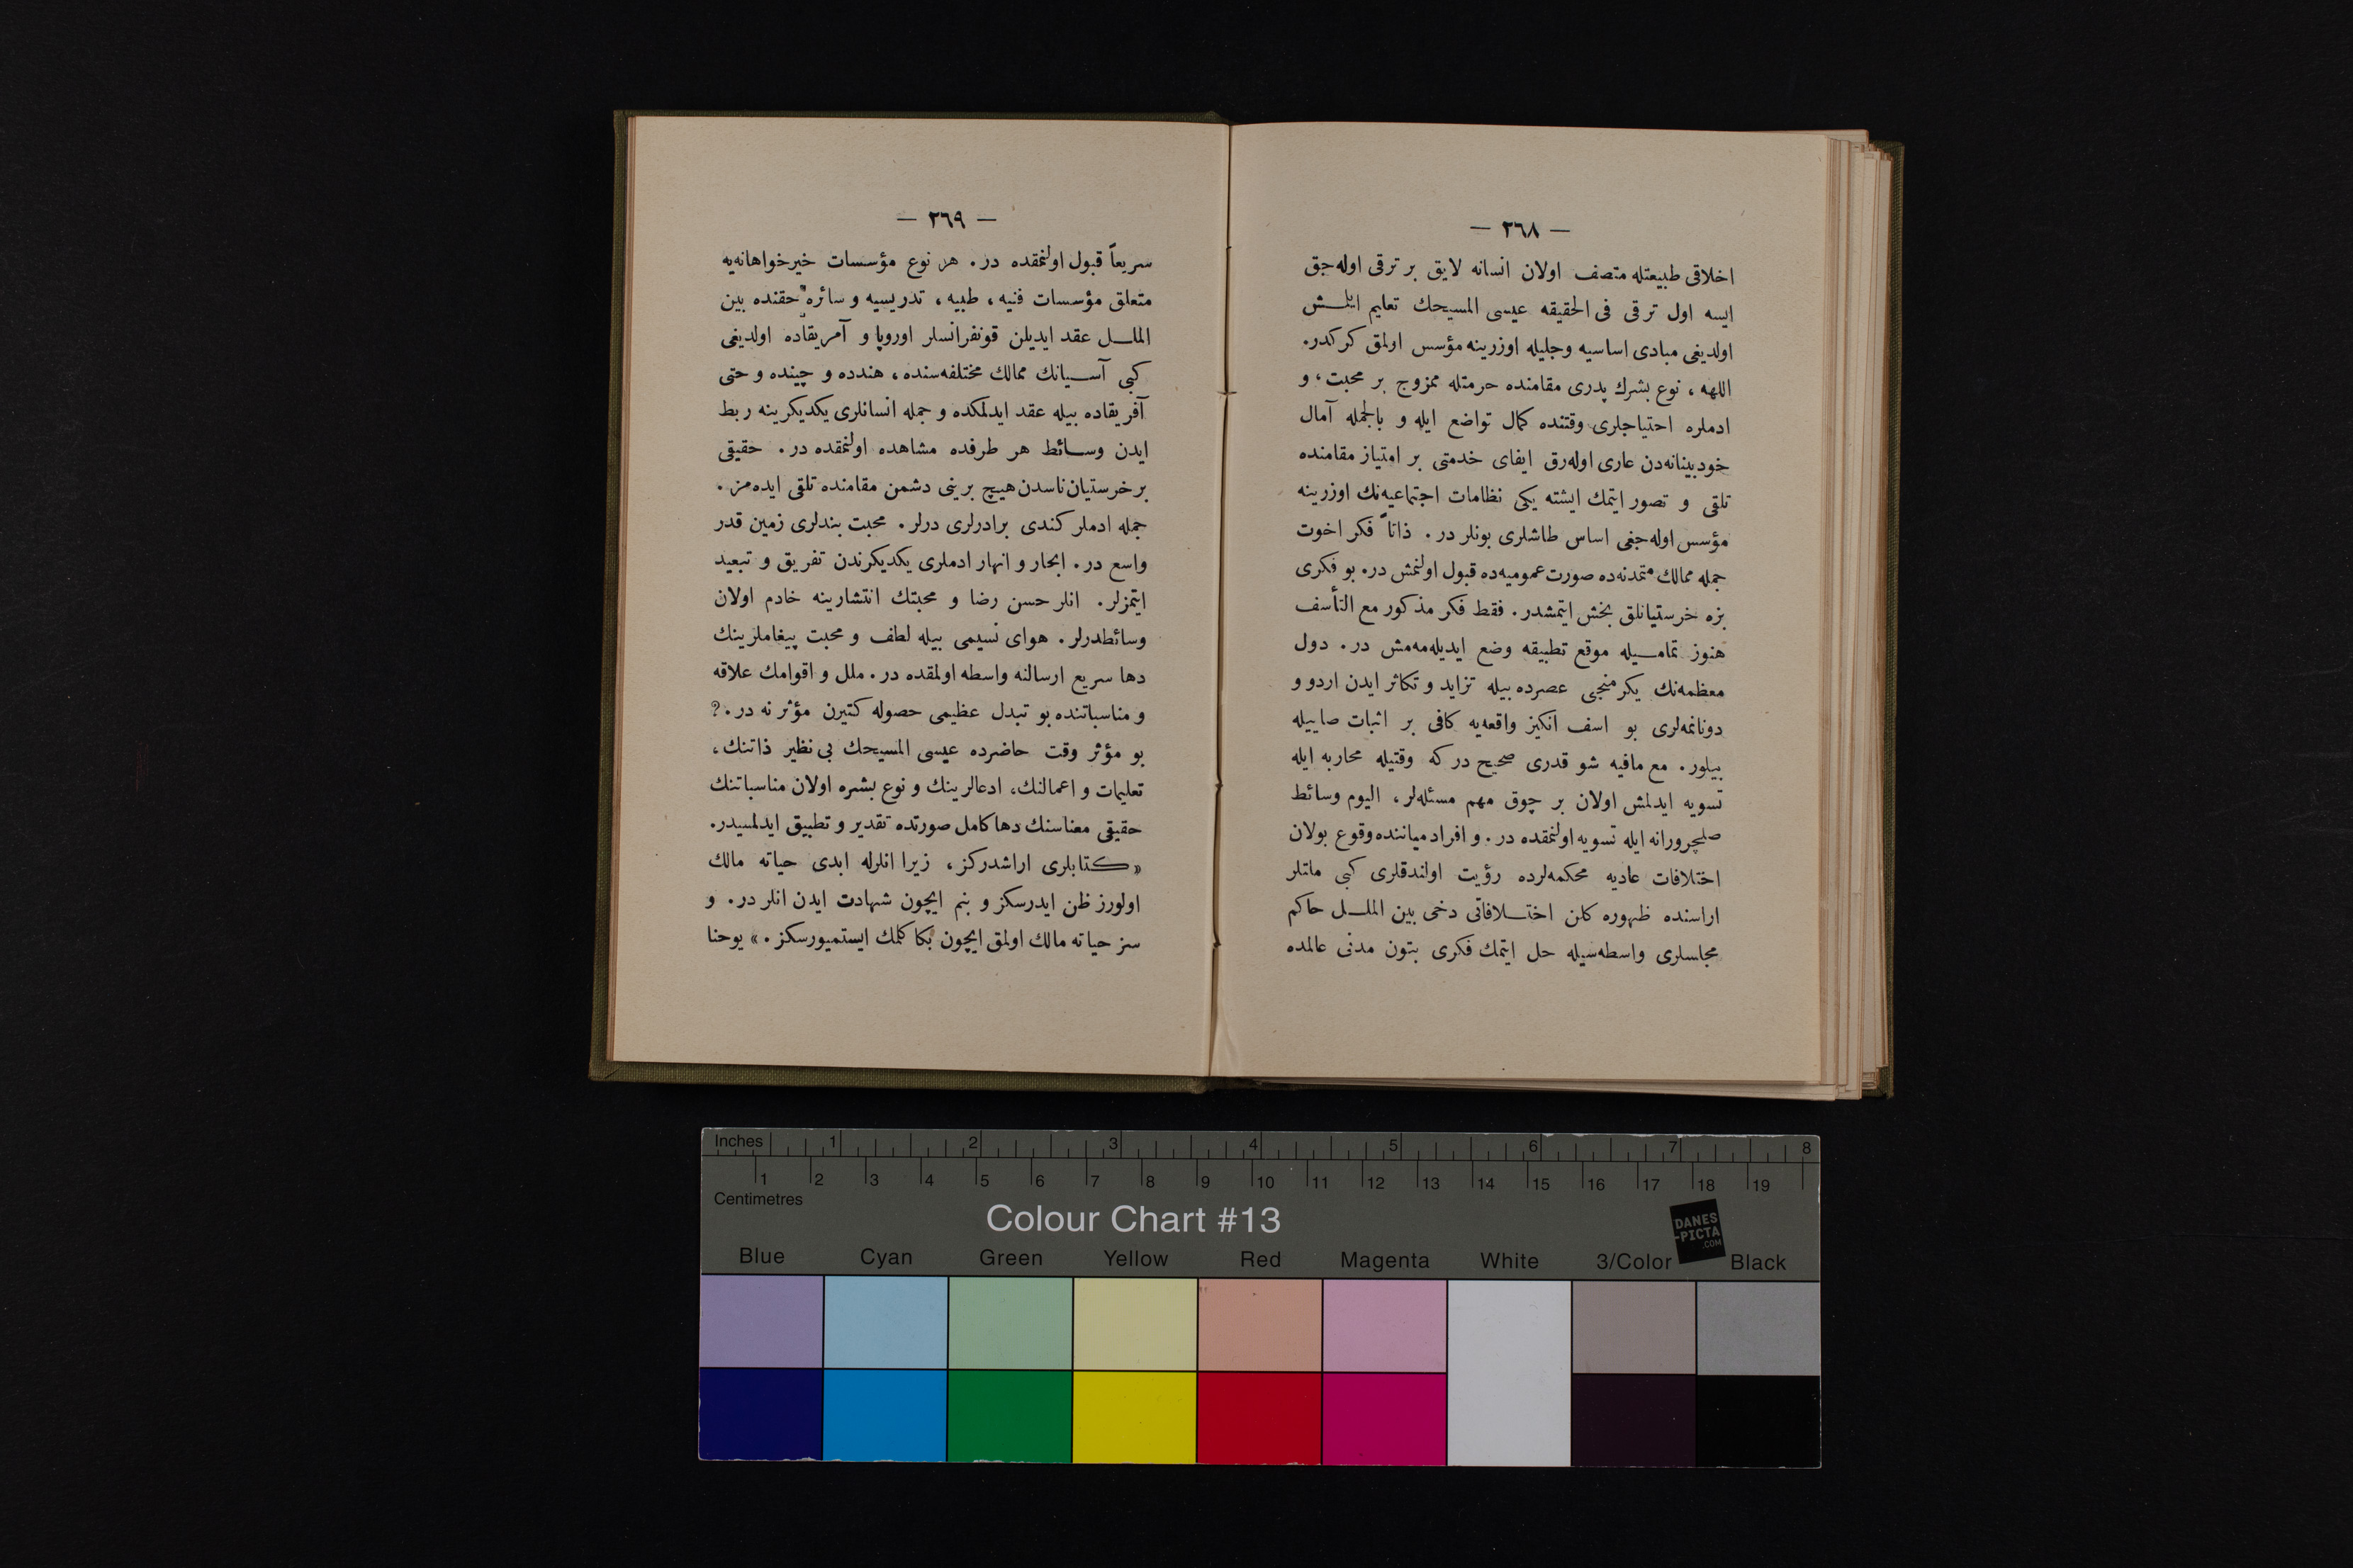 — ٢٦٨ —
اخلاقی طبیعتله متصف اولان انسانه لایق بر ترقی اوله‌جق
ایسه اول ترقی فی الحقیقه عیسی المسیحك تعلیم ایلمش
اولدیغی مبادی اساسیه وجلیله اوزرینه مؤسس اولمق كركدر.
اللهه ، نوع بشرك پدری مقامنده حرمتله ممزوج بر محبت ، و
ادملره احتیاجلری وقتنده كمال تواضع ایله و بالجمله آمال
خودبینانه‌دن عاری اوله‌رق ایفای خدمتی بر امتیاز مقامنده
تلقی و تصور ایتمك ایشته یكی نظامات اجتماعیه‌نك اوزرینه
مؤسس اوله‌جغی اساس طاشلری بونلر در . ذاتاً فكر اخوت
جمله ممالك متمدنه‌ده صورت عمومیه‌ده قبول اولنمش در. بو فكری
بزه خرستیانلق بخش ایتمشدر . فقط فكر مذكور مع التأسف
هنوز تمامــیله موقع تطبیقه وضع ایدیله‌مه‌مش در . دول
معظمه‌نك یكرمنجی عصرده بیله تزاید و تكاثر ایدن اردو و
دونانمه‌لری بو اسف انكیز واقعه‌یه كافی بر اثبات صاییله
بیلور . مع مافیه شو قدری صحیح در كه وقتیله محاربه ایله
تسویه ایدلمش اولان بر چوق مهم مسئله‌لر ، الیوم وسائط
صلحپرورانه ایله تسویه اولنمقده در . و افراد میاننده وقوع بولان
اختلافات عادیه محكمه‌لرده رؤیت اولندقلری كبی ملتلر
اراسنده ظهوره كلن اختـــلافاتی دخی بین الملــل حاكم
مجلسلری واسطه‌سیله حل ایتمك فكری بتون مدنی عالمده
— ٢٦٩ —
سریعاً قبول اولنمقده در . هر نوع مؤسسات خیرخواهانه‌یه
متعلق مؤسسات فنیه ، طبیه ، تدریسیه و سائره حقنده بین
الملـــل عقد ایدیلن قونفرانسلر اوروپا و آمریقاده اولدیغی
كبی آســـیانك ممالك مختلفه‌سنده ، هندده و چینده و حتی
آفریقاده بیله عقد ایدلمكده و جمله انسانلری یكدیكرینه ربط
ایدن وســائط هر طرفده مشاهده اولنمقده در . حقیقی
بر خرستیان ناسدن هیچ برینی دشمن مقامنده تلقی ایده‌مز .
جمله ادملر كندی برادرلری درلر . محبت بندلری زمین قدر
واسع در . ابحار و انهار ادملری یكدیكرندن تفریق و تبعید
ایتمزلر . انلر حسن رضا و محبتك انتشارینه خادم اولان
وسائطدرلر . هوای نسیمی بیله لطف و محبت پیغاملرینك
دها سریع ارسالنه واسطه اولمقده در . ملل و اقوامك علاقه
و مناسباتنده بو تبدل عظیمی حصوله كتیرن مؤثر نه در .؟
بو مؤثر وقت حاضرده عیسی المسیحك بی نظیر ذاتنك ،
تعلیمات و اعمالنك، ادعالرینك و نوع بشره اولان مناسباتنك
حقیقی معناسنك دها كامل صورتده تقدیر و تطبیق ایدلمسیدر.
« كــتابلری اراشدركز ، زیرا انلرله ابدی حیاته مالك
اولورز ظن ایدرسكز و بنم ایچون شهادت ایدن انلر در . و
سز حیاته مالك اولمق ایچون بكا كلمك ایستمیورسكز . » یوحنا
Inches 1 2 3 4 5 6 7 8
1 2 3 4 5 6 7 8 9 10 11 12 13 14 15 16 17 18 19
Centimetres
Colour Chart #13
DANES
-PICTA
.COM
Blue Cyan Green Yellow Red Magenta White 3/Color Black